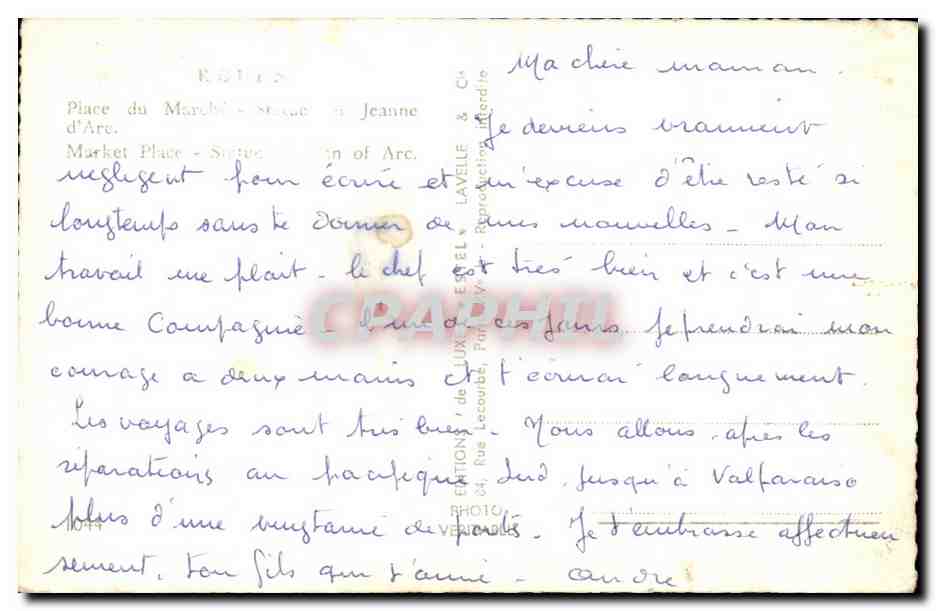 Ma chère maman.
Je deviens vraiment
negligent pour écrire et m'excuse d'être resté si
longtemps sans te donner de mes nouvelles - Mon
travail me plait - le chef est très bien et c'est une
bonne Compagnie - L'un de ces jours Je prendrai mon
courage a deux mains et t'écrirai longuement.
Les voyages sont très bien - Nous allons après les
réparations au pacifique Sud, jusqu'à Valparaiso
plus d'une vingtaine de ports - Je t'embrasse affectueu
sement, ton fils qui t'aime - andre
Place du Marché - Statue Jeanne
d'Arc.
Market Place - of Arc.
EDITIONS de LUXE "ESTEL" LAVELLE & Cie
84, Rue Lecourbe, Paris XVe - Reproduction interdite
PHOTO
VERITABLE
CPAPHIL